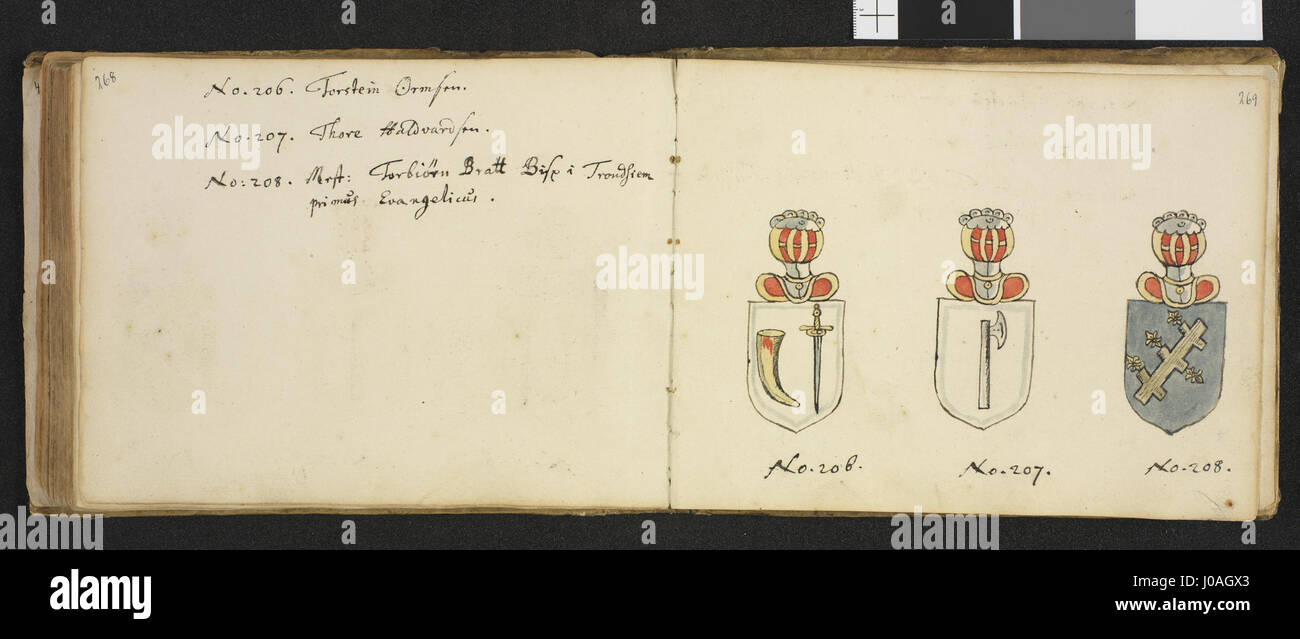 268
No. 206. Torstein Ormsen.
No. 207. Thore Haldvardsen.
No: 208. Mest: Torbiörn Bratt Bisp i Trondhiem
primus Evangelicus.
269
No. 206.
No. 207.
No. 208.
alamy
Image ID: J0AGX3
www.alamy.com